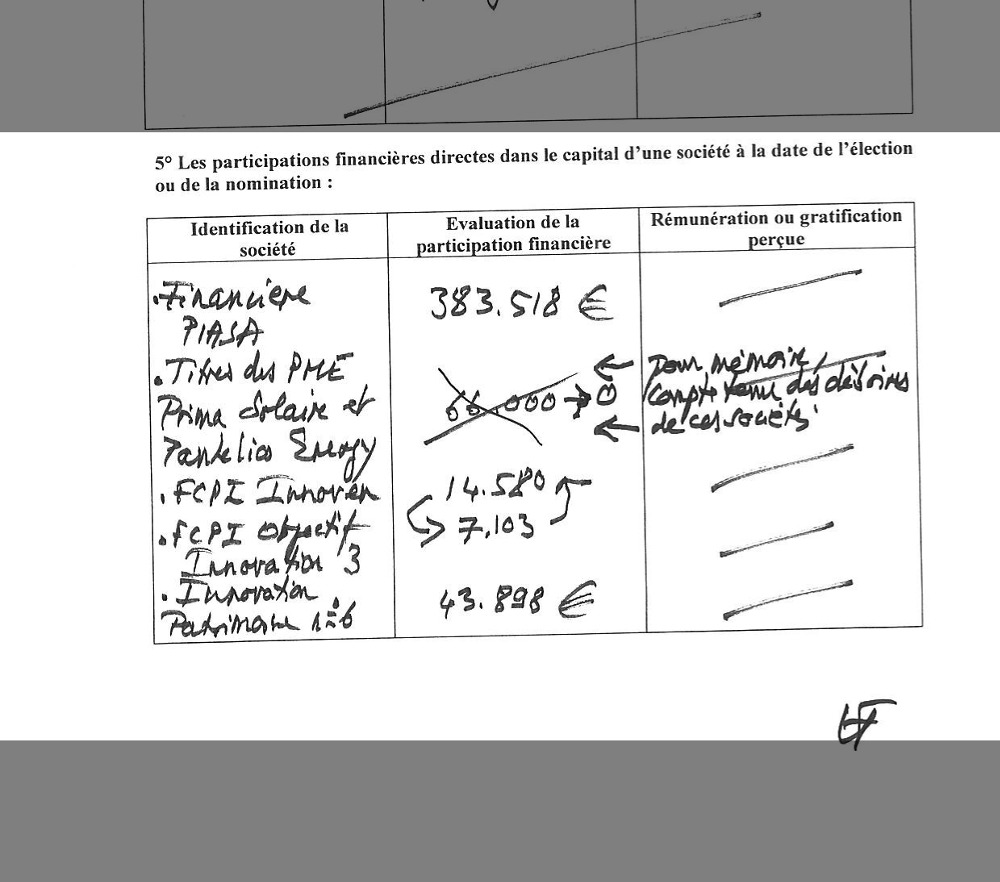 5° Les participations financières directes dans le capital d'une société à la date de l'élection
ou de la nomination :
Identification de la
société
Evaluation de la
participation financière
Rémunération ou gratification
perçue
. Financière
PIASA
383.518 €
. Titres des PME
Prima Solaire et
Pantelios Energy
.000 → 0
← Pour mémoire,
compte tenu des déboires
← de ces sociétés
. FCPI Innoven
14.580
. FCPI Objectif
Innovation 3
7.103
. Innovation
Patrimoine n° 6
43.898 €